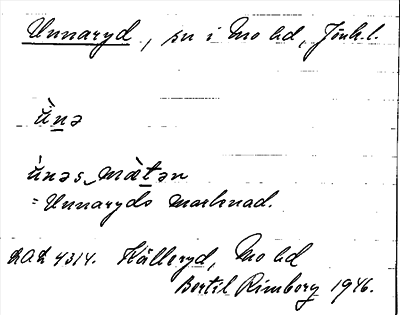 Unnaryd, sn i Mo hd, Jönk. l.
ùnə
ùnəs mæ̀tən
= Unnaryds marknad.
Källeryd, Mo hd
Bertil Rimborg 1946.